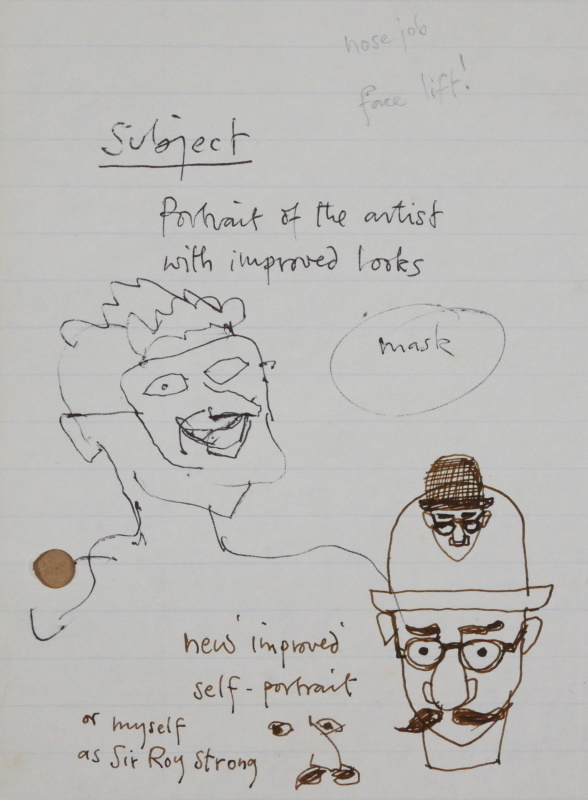 nose job
face lift!
Subject
Portrait of the artist
with improved looks
mask
new 'improved'
self-portrait
or myself
as Sir Roy Strong